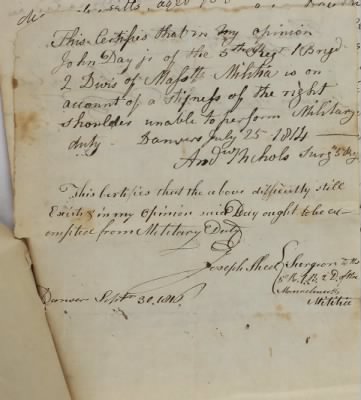 This Certifies that in my opinion
John Day jr of the 5th Regt 1 Brigd
2 Divis of Massts Militia is on
account of a stifness of the right
shoulder unable to perform Military
duty. Danvers July 25 1814
Andw Nichols Surgn 5 Reg
This Certifies that the above difficulty still
Exists & in my Opinion said Day ought to be ex-
emptice from Military Duty
Joseph Surgeon to the
5 R. 1 B. 2 D. of the
Massachusetts
Militia
Danvers Septr 30.